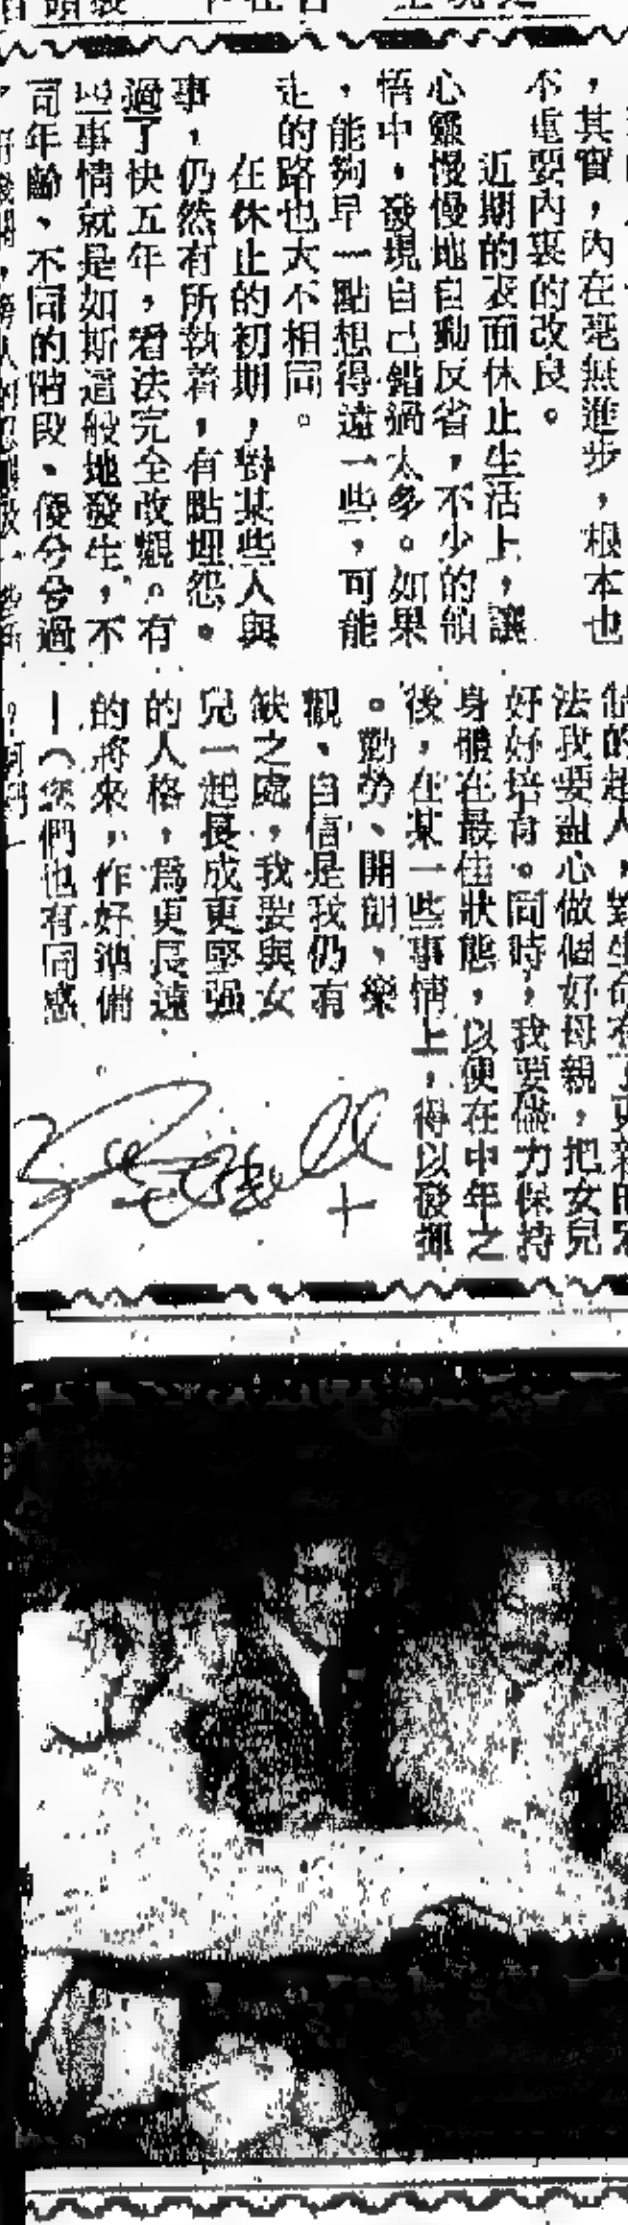 ，其實，內在毫無進步，根本也
不重要內裏的改良。
近期的表面休止生活上，讓
心靈慢慢地自動反省，不少的領
悟中，發現自己錯過太多。如果
，能夠早一點想得遠一些，可能
走的路也大不相同。
在休止的初期，對某些人與
事，仍然有所執着，有點埋怨。
過了快五年，看法完全改觀。有
些事情就是如斯這般地發生，不
同年齡、不同的階段、便分分過
的超人，對生命有了更新的
法我要盡心做個好母親，把女兒
好好培育。同時，我要儘力保持
身體在最佳狀態，以便在中年之
後，在某一些事情上，得以發揮
。勤勞、開朗、樂
觀、自信是我仍有
缺之處，我要與女
兒一起長成更堅强
的人格，爲更長遠
的將來，作好準備
—（您們也有同感